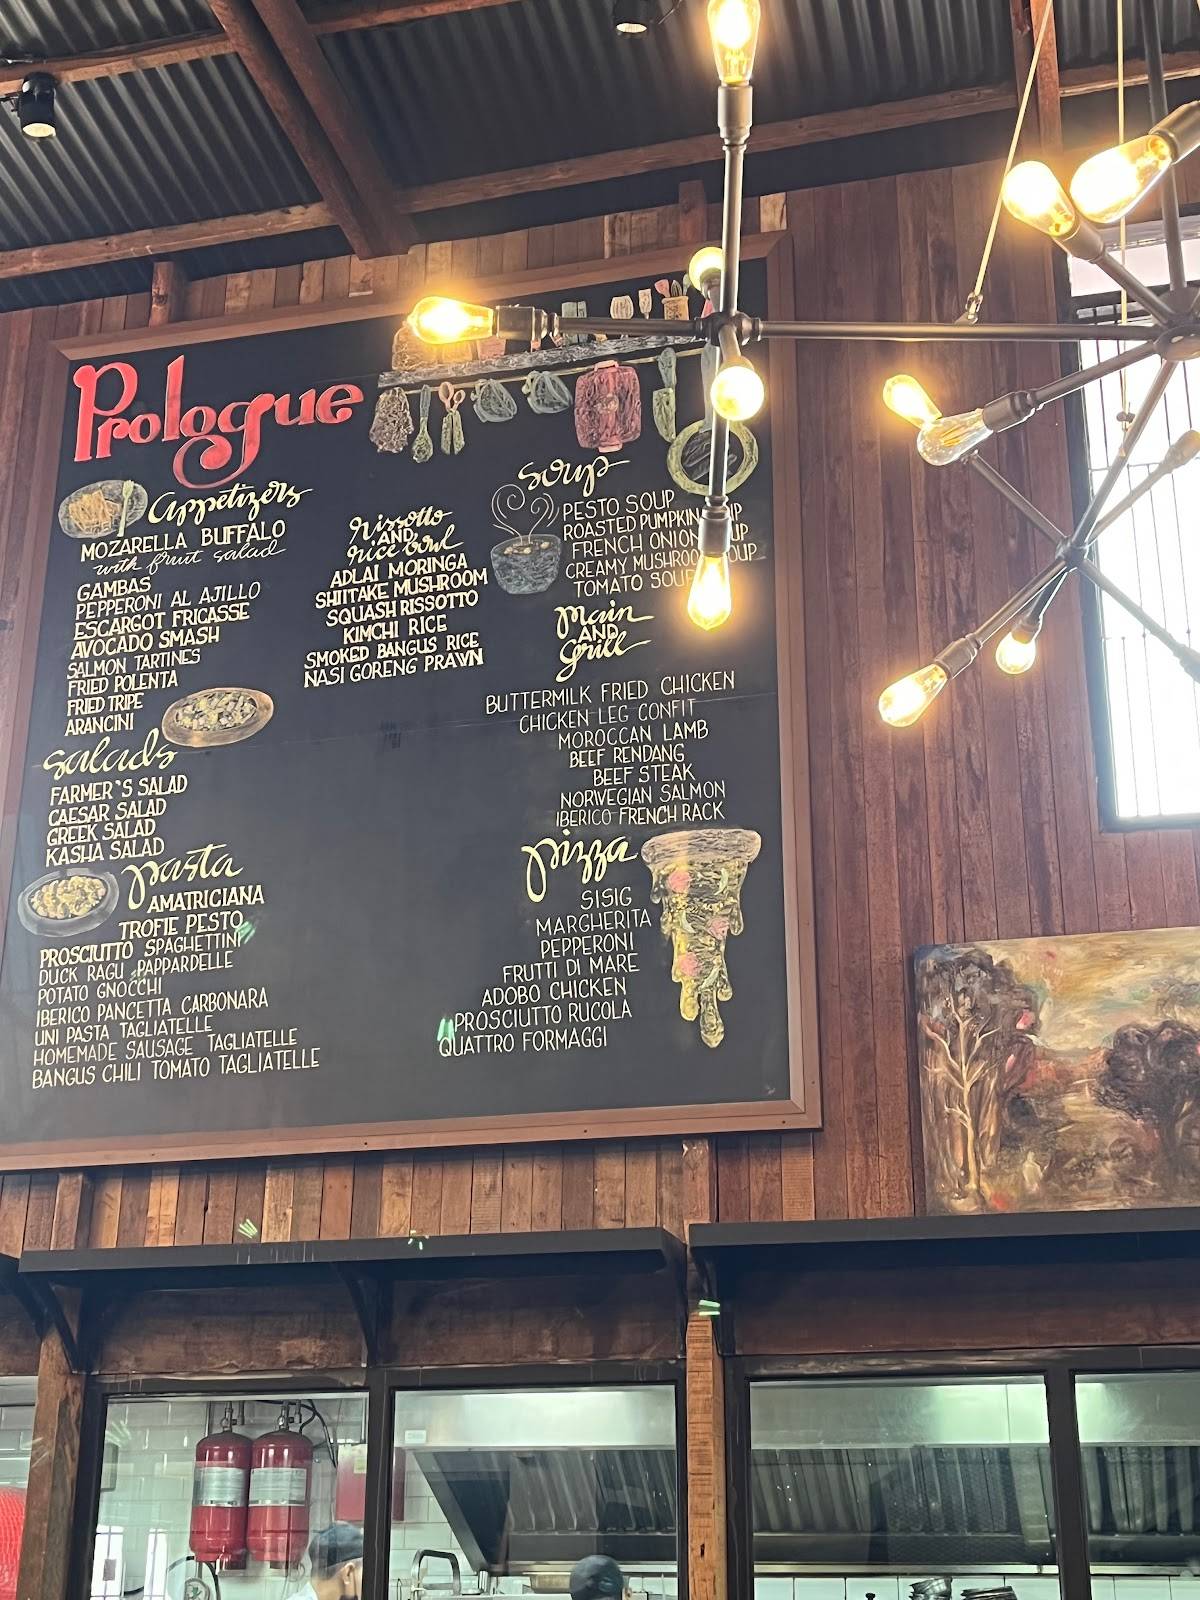 Prologue
Appetizers
MOZARELLA BUFFALO
with fruit salad
GAMBAS
PEPPERONI AL AJILLO
ESCARGOT FRICASSE
AVOCADO SMASH
SALMON TARTINES
FRIED POLENTA
FRIED TRIPE
ARANCINI
Salads
FARMER'S SALAD
CAESAR SALAD
GREEK SALAD
KASHA SALAD
Pasta
AMATRICIANA
TROFIE PESTO
PROSCIUTTO SPAGHETTINI
DUCK RAGU PAPPARDELLE
POTATO GNOCCHI
IBERICO PANCETTA CARBONARA
UNI PASTA TAGLIATELLE
HOMEMADE SAUSAGE TAGLIATELLE
BANGUS CHILI TOMATO TAGLIATELLE
Rissotto
AND
rice bowl
ADLAI MORINGA
SHIITAKE MUSHROOM
SQUASH RISSOTTO
KIMCHI RICE
SMOKED BANGUS RICE
NASI GORENG PRAWN
Soup
PESTO SOUP
ROASTED PUMPKIN
FRENCH ONION
CREAMY MUSHROOM SOUP
TOMATO SOUP
Main
AND
Grill
BUTTERMILK FRIED CHICKEN
CHICKEN LEG CONFIT
MOROCCAN LAMB
BEEF RENDANG
BEEF STEAK
NORWEGIAN SALMON
IBERICO FRENCH RACK
Pizza
SISIG
MARGHERITA
PEPPERONI
FRUTTI DI MARE
ADOBO CHICKEN
PROSCIUTTO RUCOLA
QUATTRO FORMAGGI